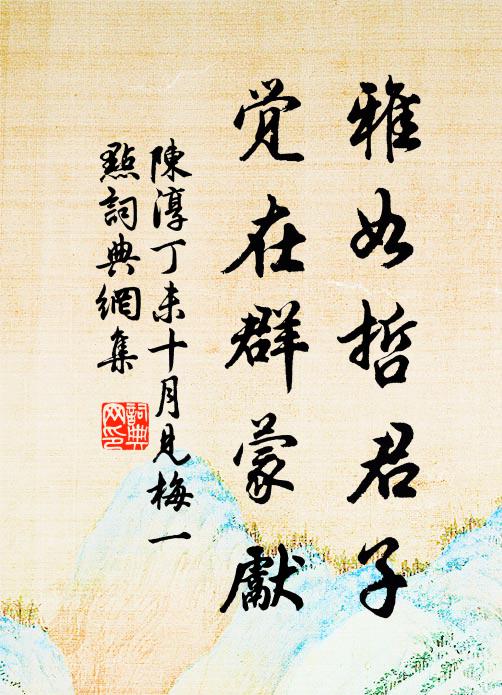 雅如哲君子
觉在群蒙獻
陳淳丁未十月見梅一
點詞典網集
詞典网印